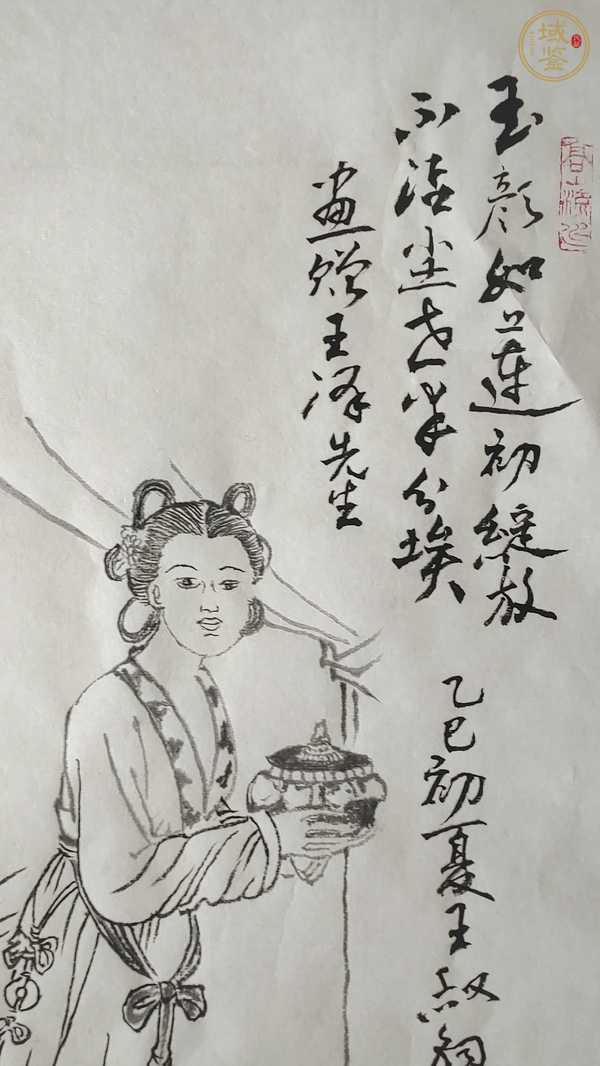 玉颜如莲初绽放
不沾尘世半分埃
畫赠王泽先生
乙巳初夏王叔
域鉴